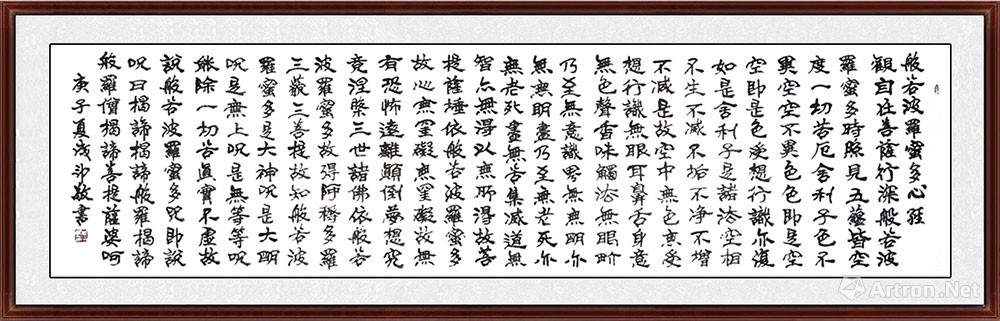 般若波羅蜜多心經
觀自在菩薩行深般若波
羅蜜多時照見五蘊皆空
度一切苦厄舍利子色不
異空空不異色色即是空
空即是色受想行識亦復
如是舍利子是諸法空相
不生不滅不垢不淨不增
不減是故空中無色無受
想行識無眼耳鼻舌身意
無色聲香味觸法無眼界
乃至無意識界無無明亦
無無明盡乃至無老死亦
無老死盡無苦集滅道無
智亦無得以無所得故菩
提薩埵依般若波羅蜜多
故心無罣礙無罣礙故無
有恐怖遠離顛倒夢想究
竟涅槃三世諸佛依般若
波羅蜜多故得阿耨多羅
三藐三菩提故知般若波
羅蜜多是大神咒是大明
咒是無上咒是無等等咒
能除一切苦真實不虛故
說般若波羅蜜多咒即說
咒曰揭諦揭諦般羅揭諦
般羅僧揭諦菩提薩婆呵
庚子夏成斗敬書
Artron.Net